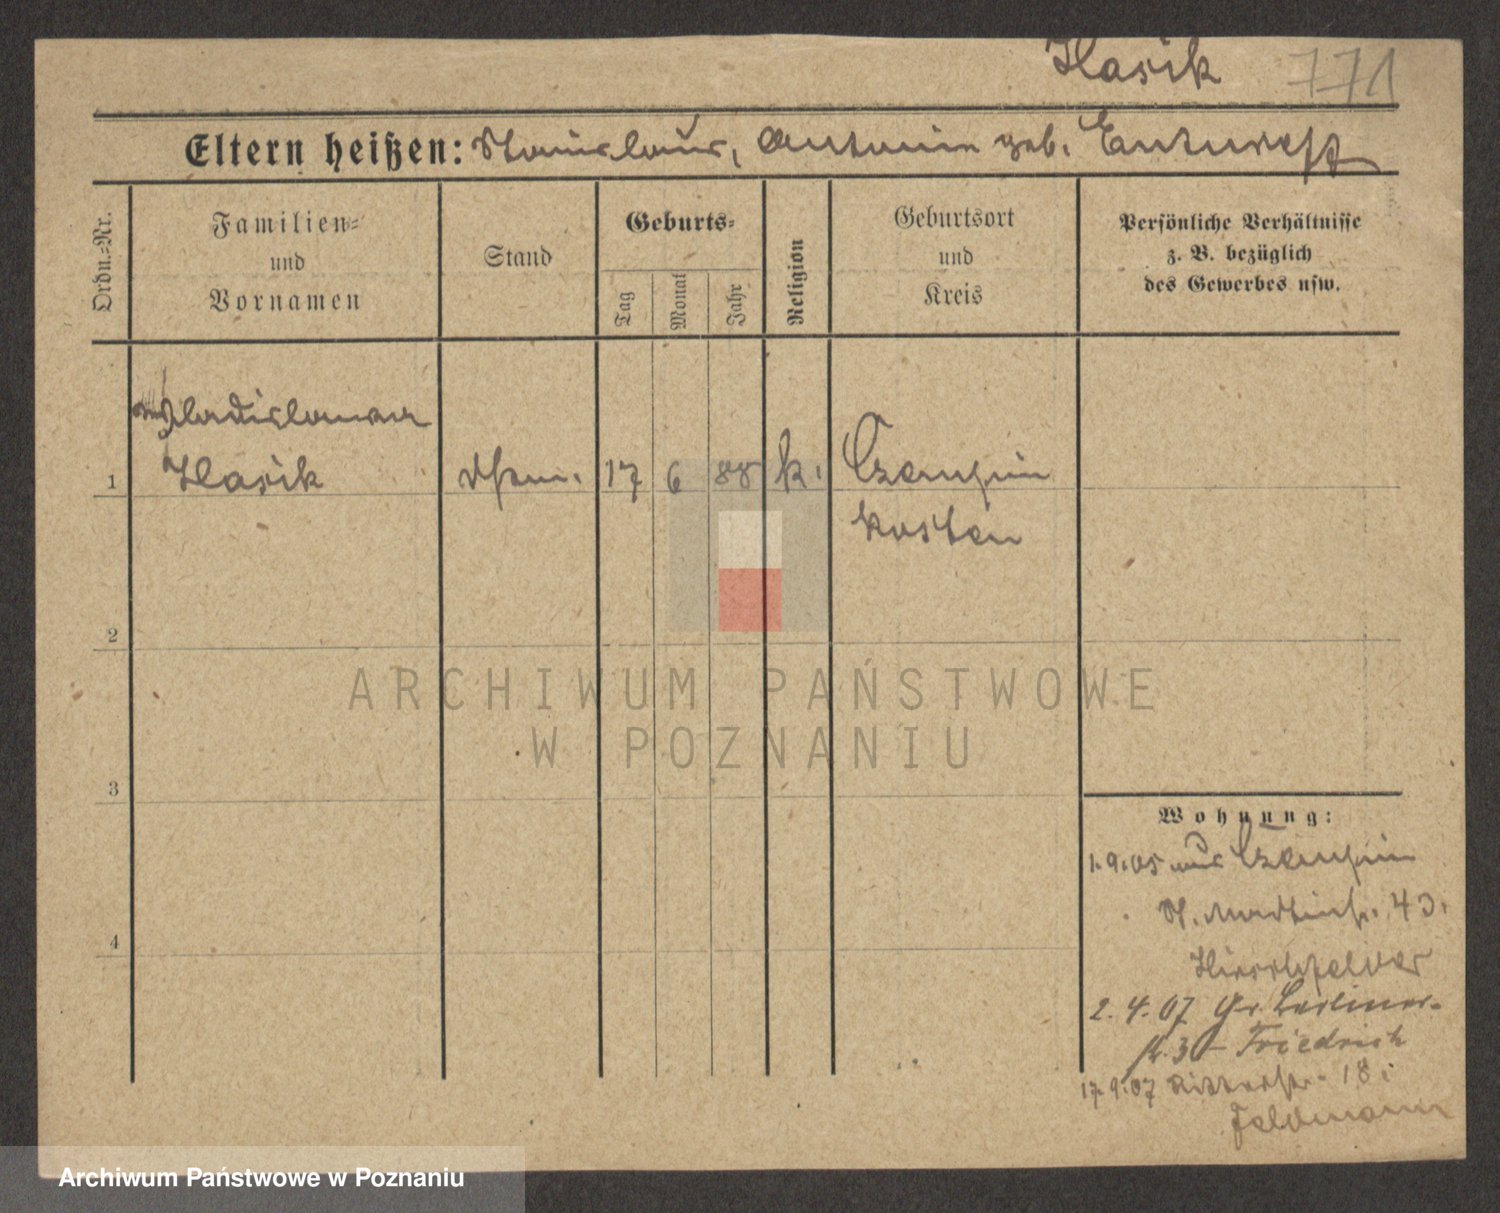 Hasik 771
Eltern heißen: Stanislaus, Antonin geb.
Ordn.-Nr.
Familien- und Vornamen
Stand
Geburts-
Tag
Monat
Jahr
Religion
Geburtsort und Kreis
Persönliche Verhältnisse
z. B. bezüglich
des Gewerbes usw.
Wladislawa
1 Hasik 17 6 88 k. Czempin
Kosten
2
3
4
ARCHIWUM PAŃSTWOWE
W POZNANIU
Wohnung:
1.9.05 aus Czempin
St. Martinstr. 43.
Hirschfelder
2.4.07 Gr. Berliner-
str. 3 - Friedrich
17.9.07 Ritterstr. 18
Feldmann
Archiwum Państwowe w Poznaniu